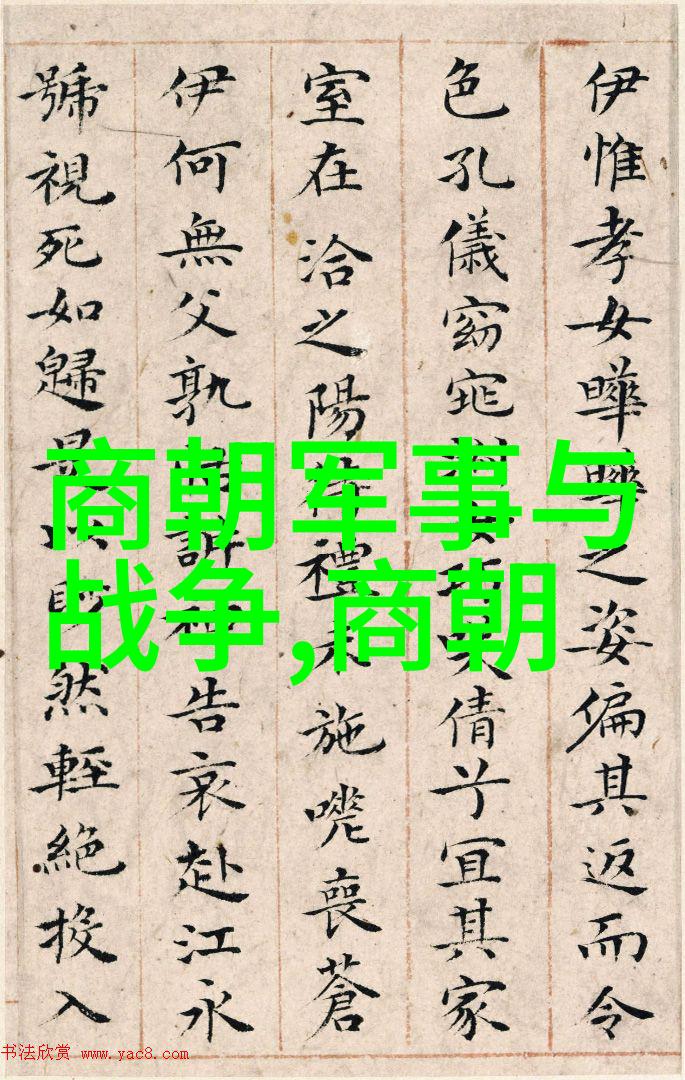 伊惟孝女曄曄之姿偏其返而令
色孔儀窈窕淑女巧笑倩兮宜其家
室在洽之陽待禮未施嗟喪蒼
伊何無父孰怙訴神告哀赴江永
號視死如歸是以眇然輕絕投入
商朝军事与
战争,商朝
书法欣赏 www.yac8.com